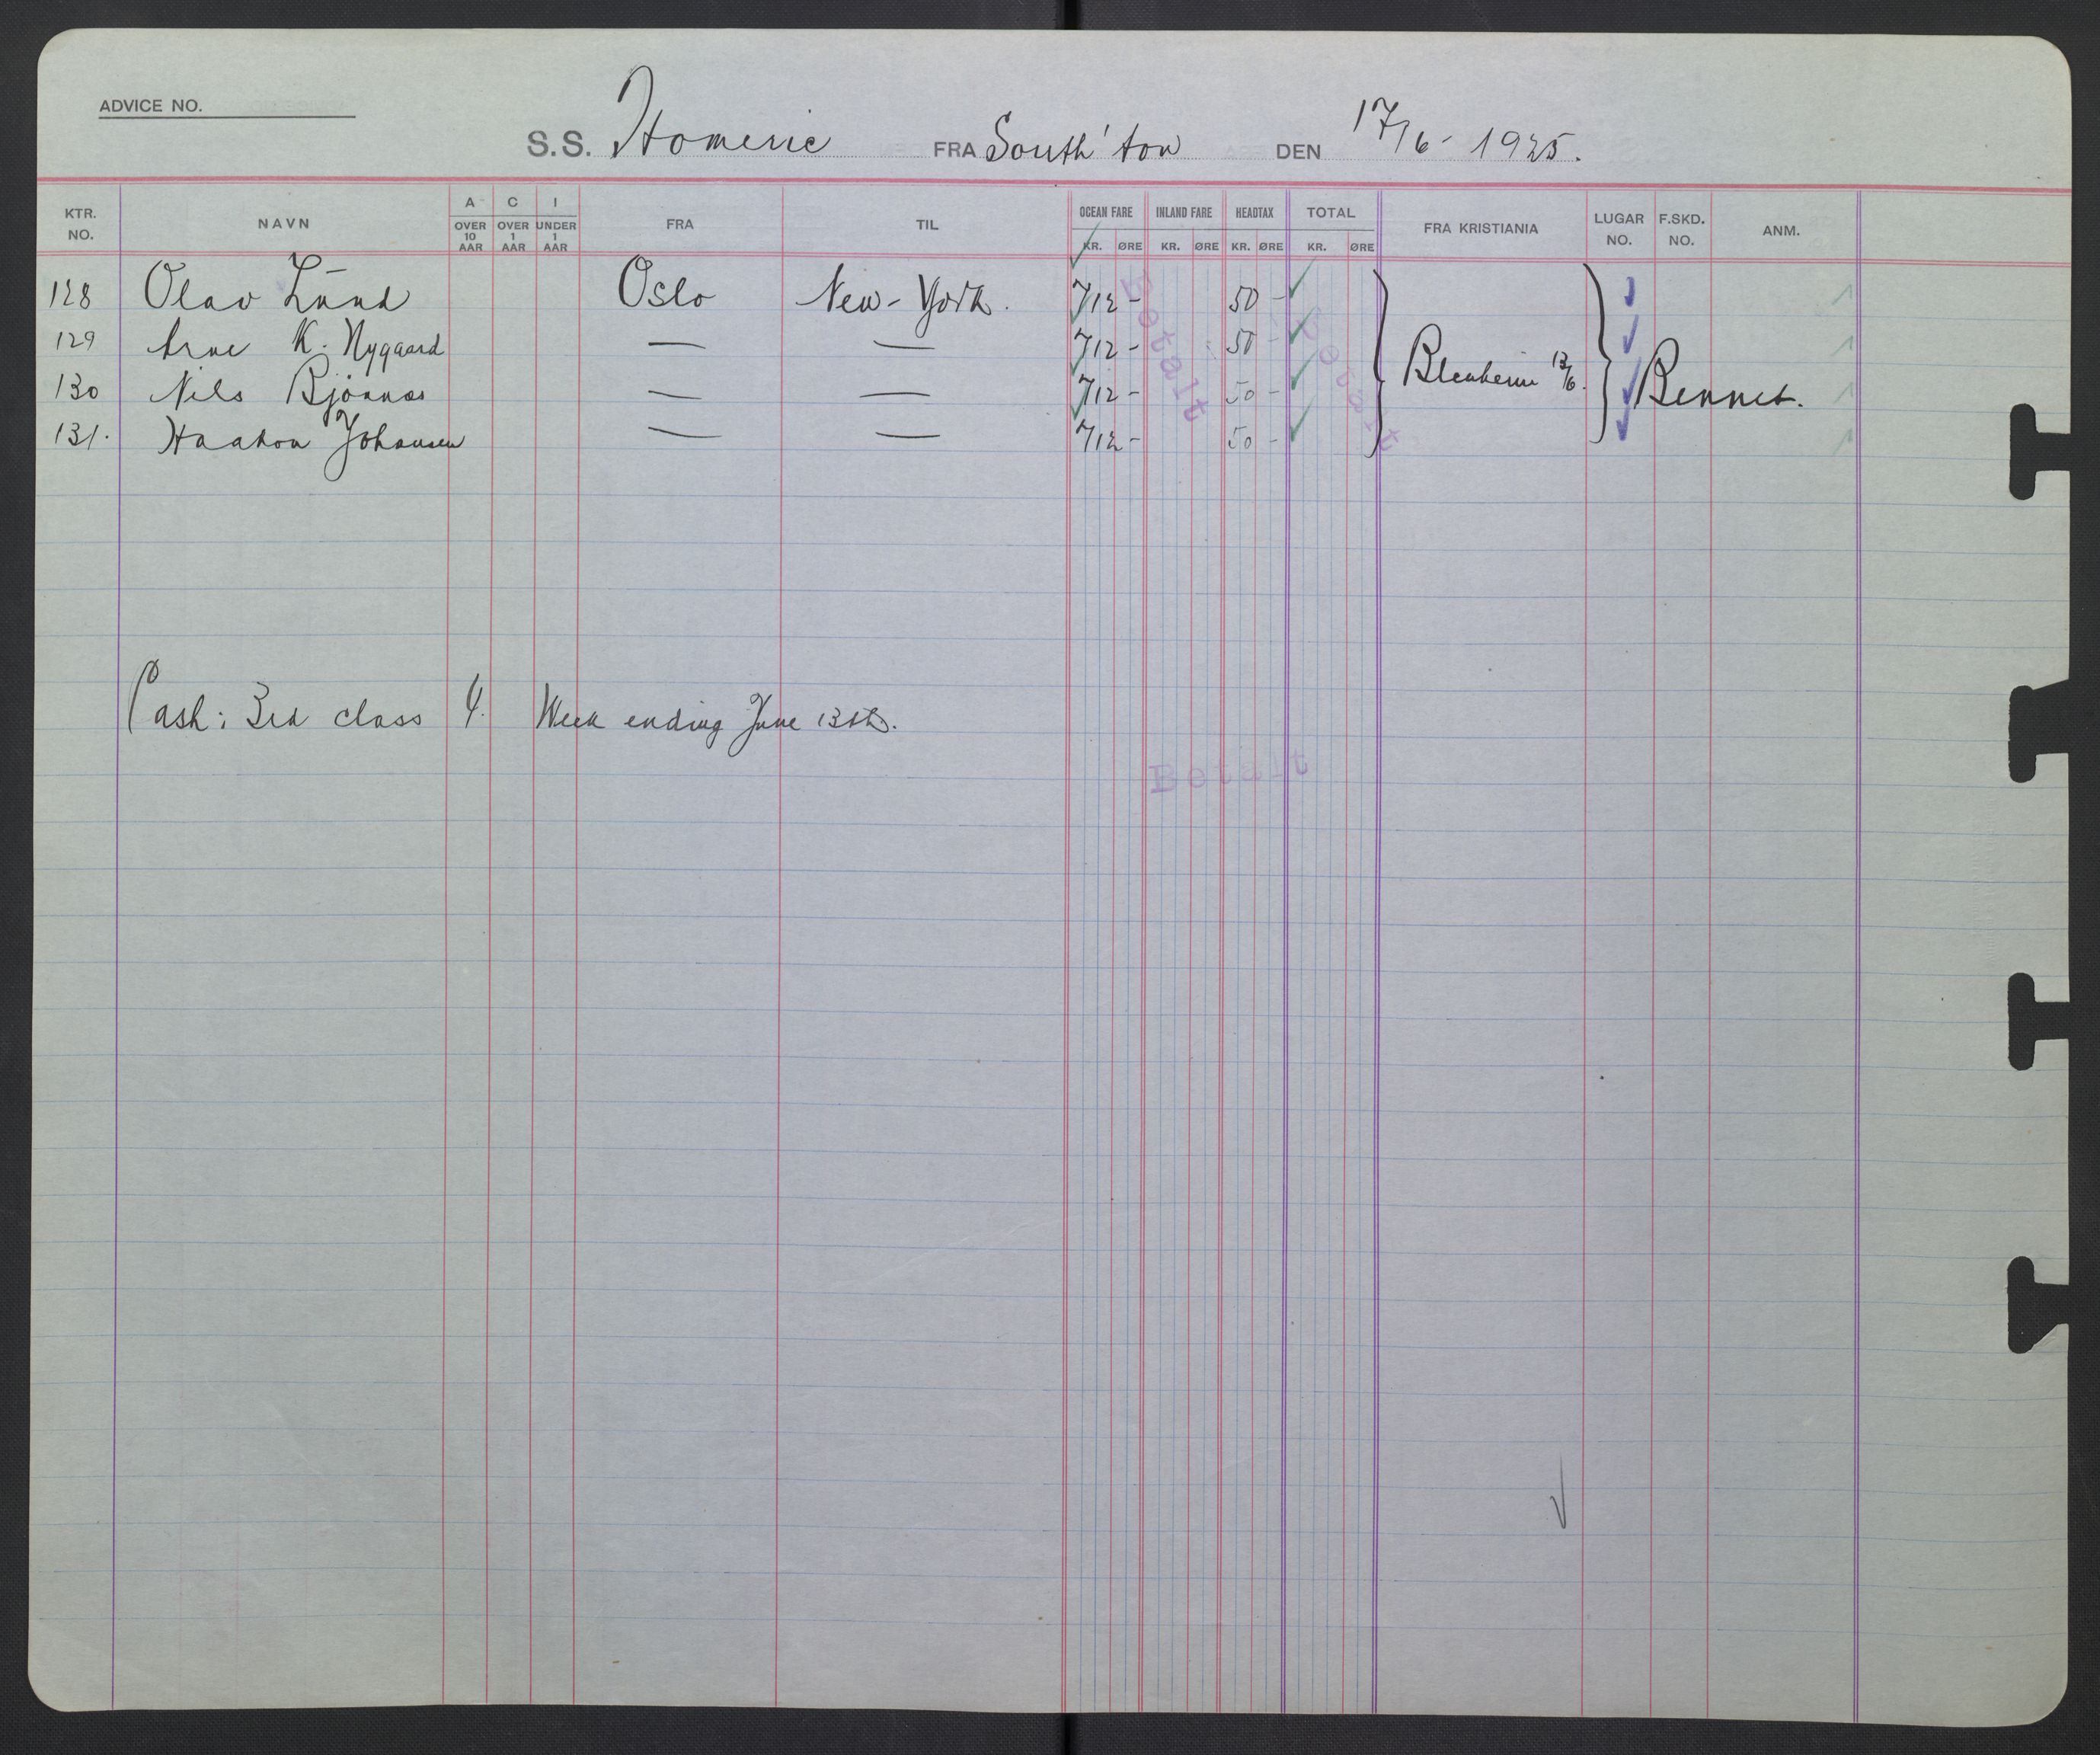 ADVICE NO.
S.S. Homeric FRA South'ton DEN 17/6- 1925.
KTR. NO. NAVN A OVER 10 AAR C OVER 1 AAR I UNDER 1 AAR FRA TIL OCEAN FARE KR. ØRE INLAND FARE KR. ØRE HEADTAX KR. ØRE TOTAL KR. ØRE FRA KRISTIANIA LUGAR NO. F.SKD. NO. ANM.
128 Olav Lund Oslo New-York. 712 - 50 -
129 Arne K. Nygaard — — 712 - 50 -
130 Nils Bjönnes — — 712 - 50 -
131. Haakon Johansen — — 712 - 50 -
Blenheim 13/6. Bennet.
Betalt
Betalt
Cash: 3rd class 4. Week ending June 13th.
Betalt